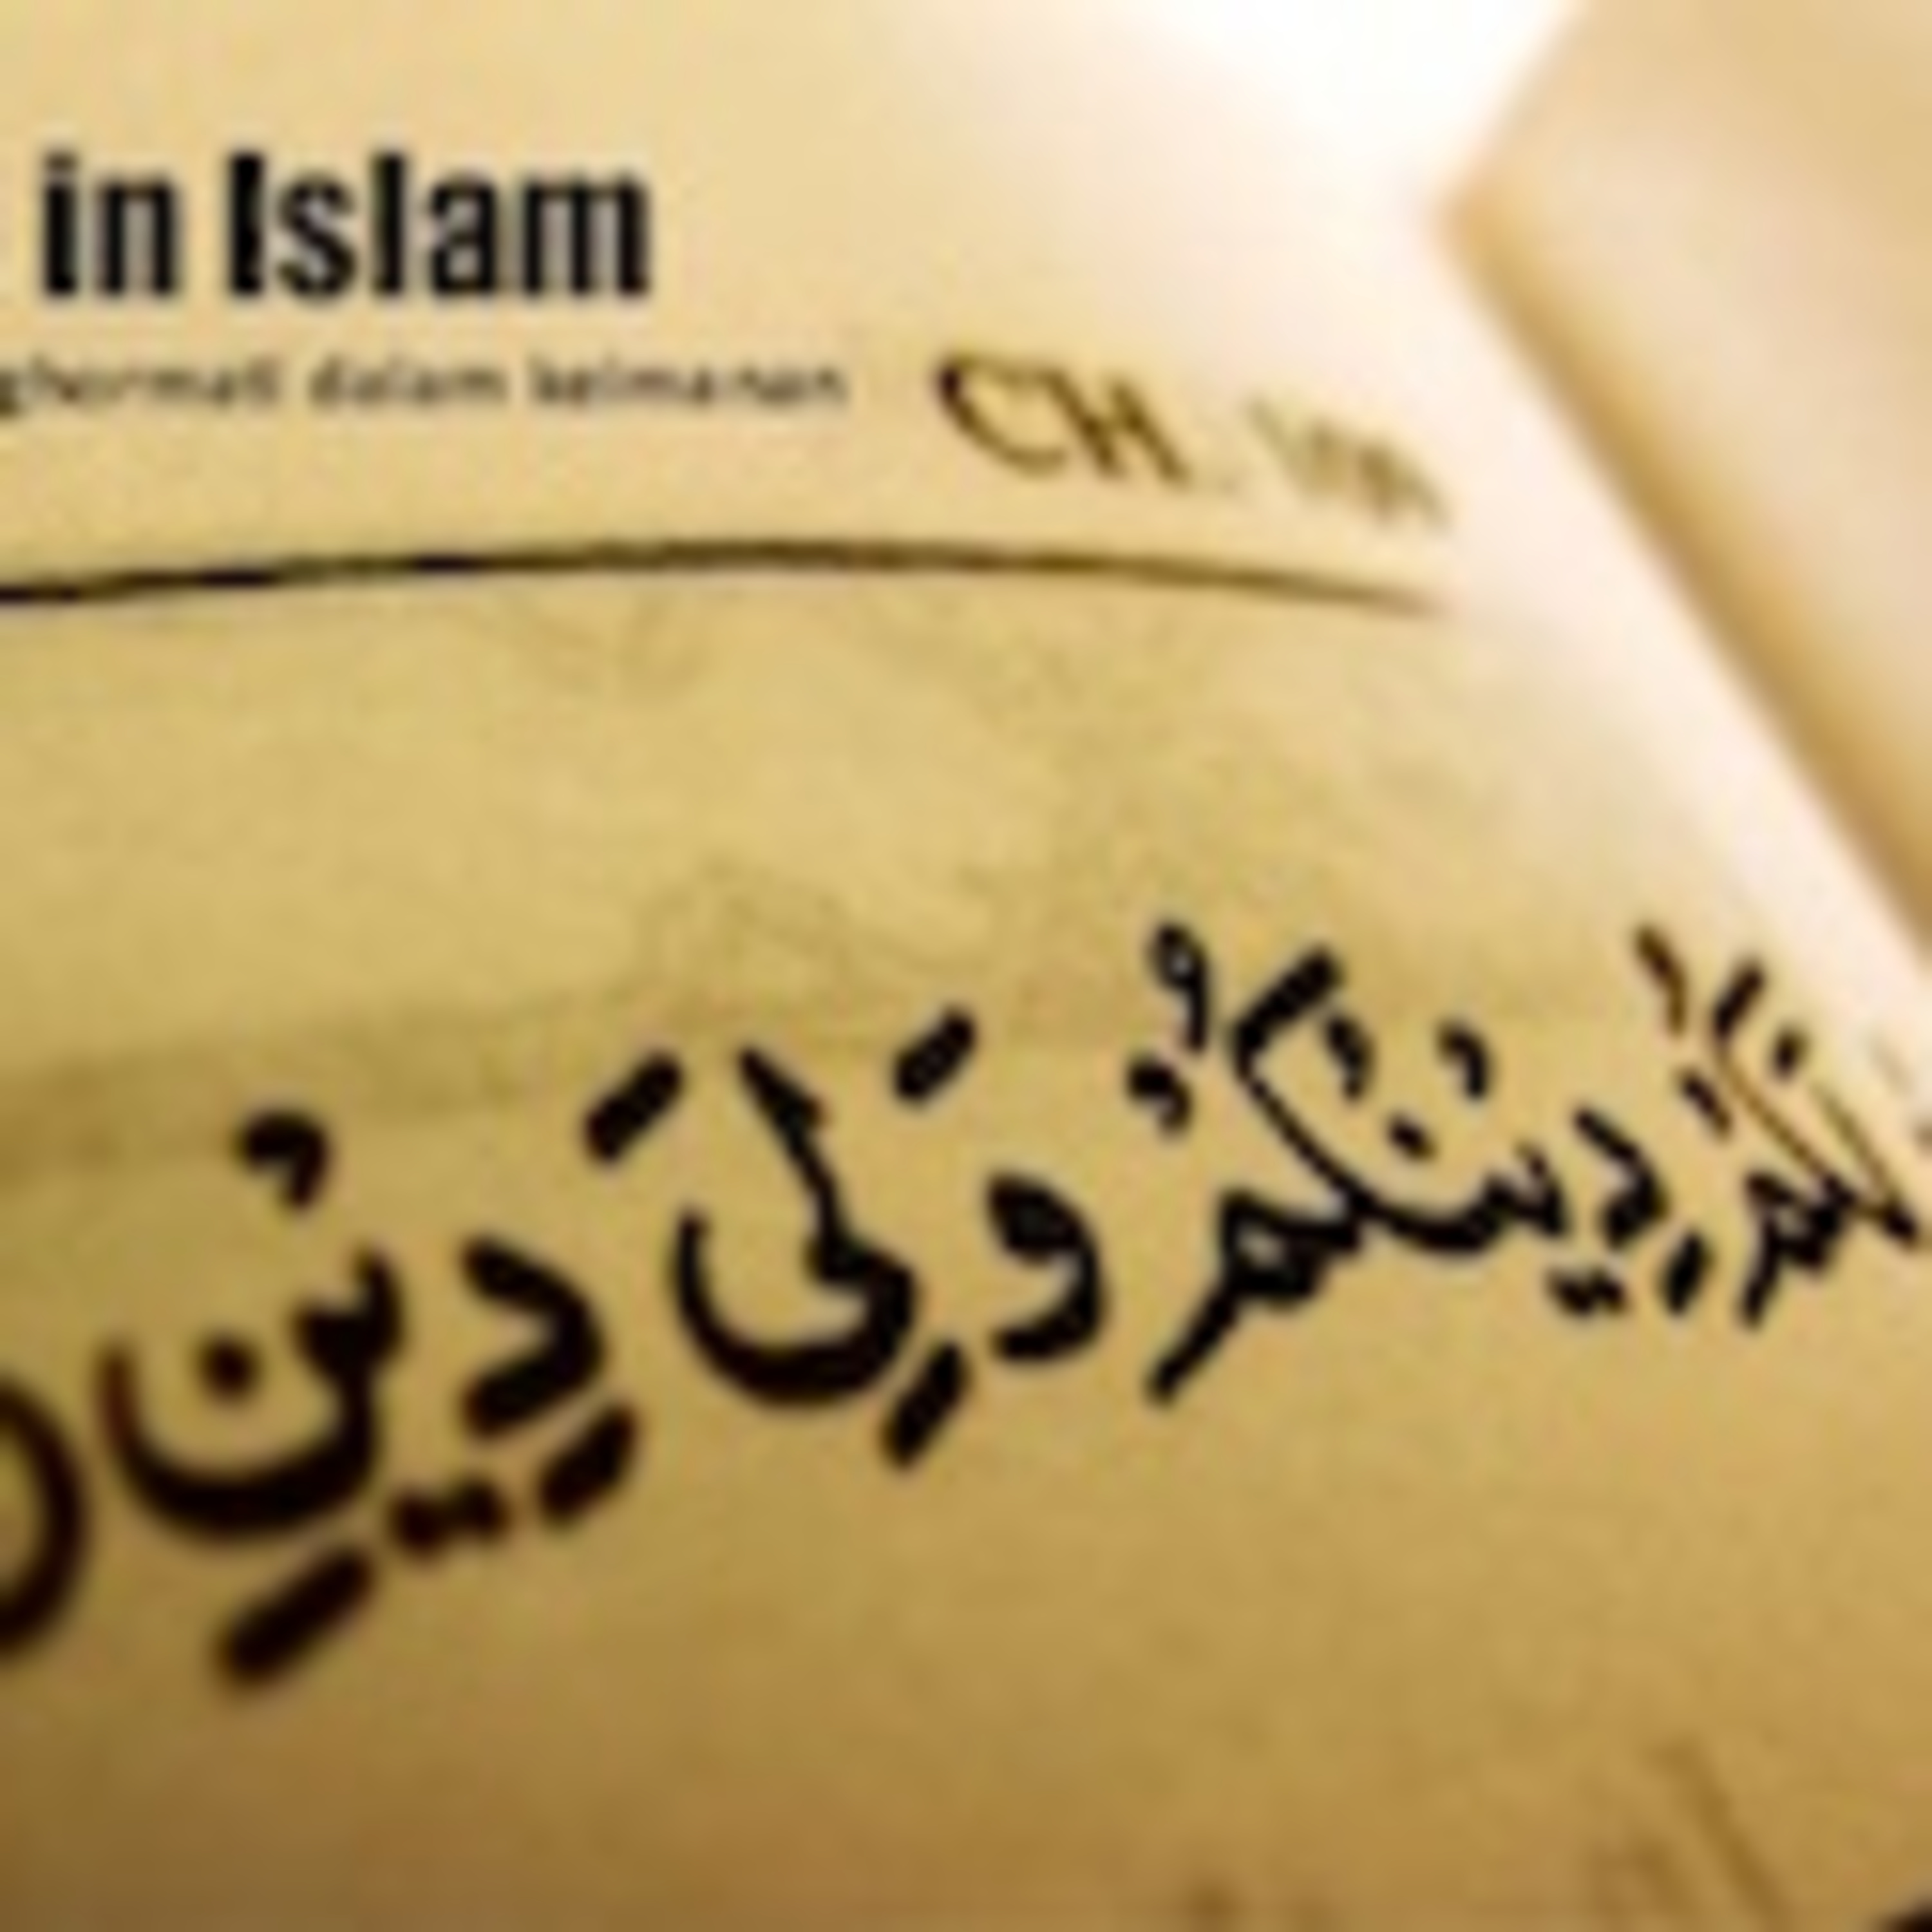 in Islam
ghormati dalam keimanan
CH.
لَكُمْ دِينُكُمْ وَلِيَ دِينِ